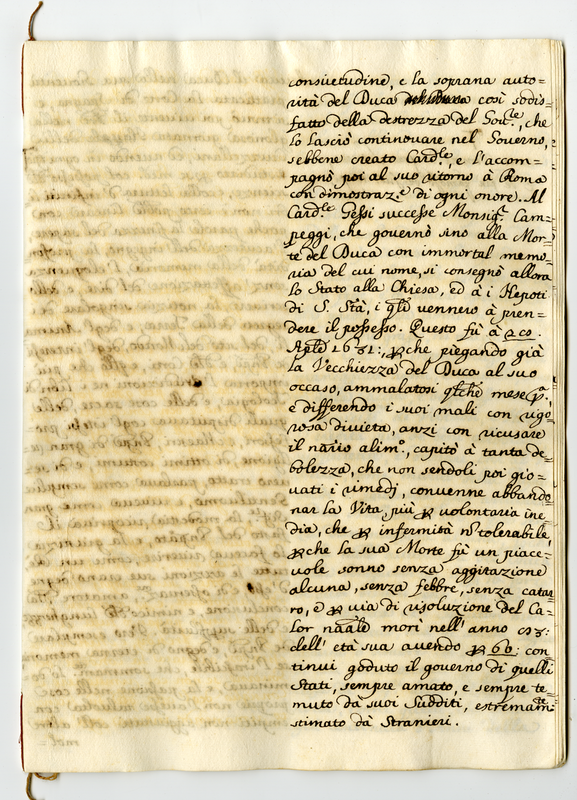 consuetudine, e la soprana auto=
rità del Duca così sodis=
fatto della destrezza del Gov.le, che
lo lasciò continovare nel Governo,
sebbene creato Card.le, e l'accom=
pagnò poi al suo ritorno à Roma
con dimostraz.e di ogni onore. Al
Card.le Gessi successe Monsig.r Cam=
peggi, che governò sino alla Mor=
te del Duca con immortal memo=
ria del cui nome, si consegnò allora
lo Stato alla Chiesa, ed à i Nepoti
di S. Stà, i qli vennero à pren=
dere il possesso. Questo fù à 20.
Aple 1631:, pche piegando già
la Vecchiezza del Duca al suo
occaso, ammalatosi qlche mese p.a,
e differendo i suoi mali con rigo
rosa divieta, anzi con ricusare
il nãrio alim.o, capitò à tanta de=
bolezza, che non sendoli poi gio=
vati i rimedj, convenne abbando
nar la Vita, più p volontaria ine
dia, che p infermità nõ tolerabile,
pche la sua Morte fù un piace=
vole sonno senza aggitazione
alcuna, senza febbre, senza catar
ro, e p via di risoluzione del Ca=
lor nãale morì nell' anno 83:
dell' età sua avendo p 60: con
tinui goduto il governo di quelli
Stati, sempre amato, e sempre te=
muto dà suoi Sudditi, estremam.te
stimato dà Stranieri.